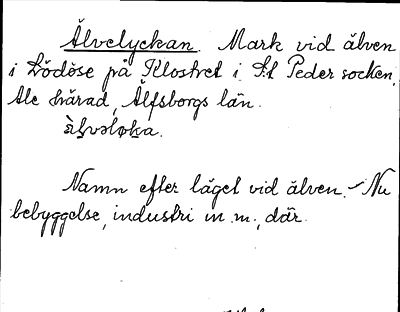 Älvelyckan. Mark vid älven
i Lödöse på Klostret i S:t Peder socken,
Ale härad, Älfsborgs län.
Namn efter läget vid älven. - Nu
bebyggelse, industri m.m., där.